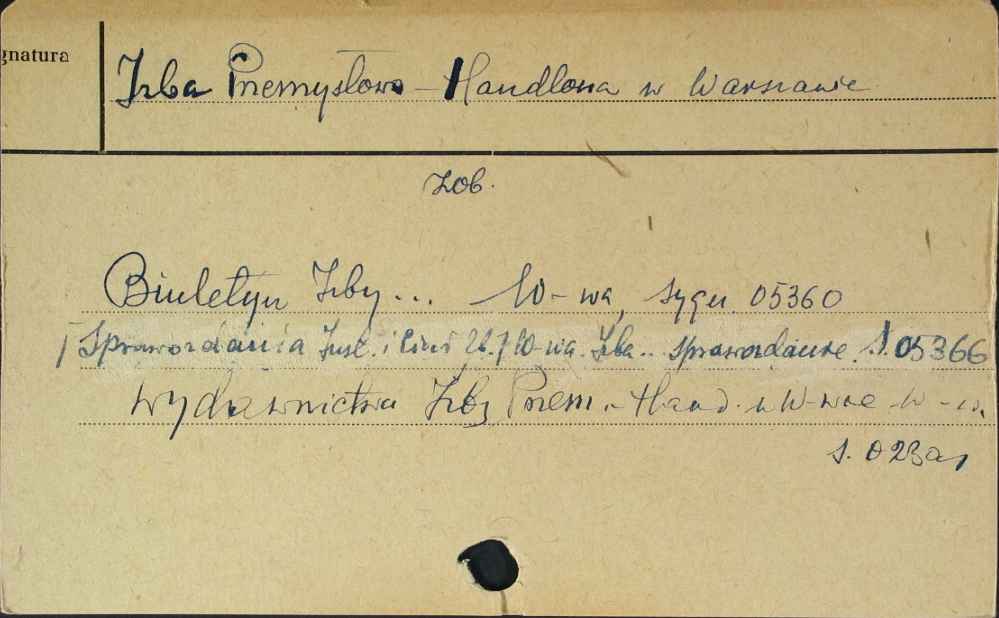 gnatura
Izba Przemysłowo - Handlowa w Warszawie
zob.
Biuletyn Izby ... W-wa, sygn. 05360
Sprawozdania Inst. i W-wa. Izba .. sprawozdanie S. 05366
Wydawnictwa Izby Przem. - Hand. w W-wie W-wa
s. 023a